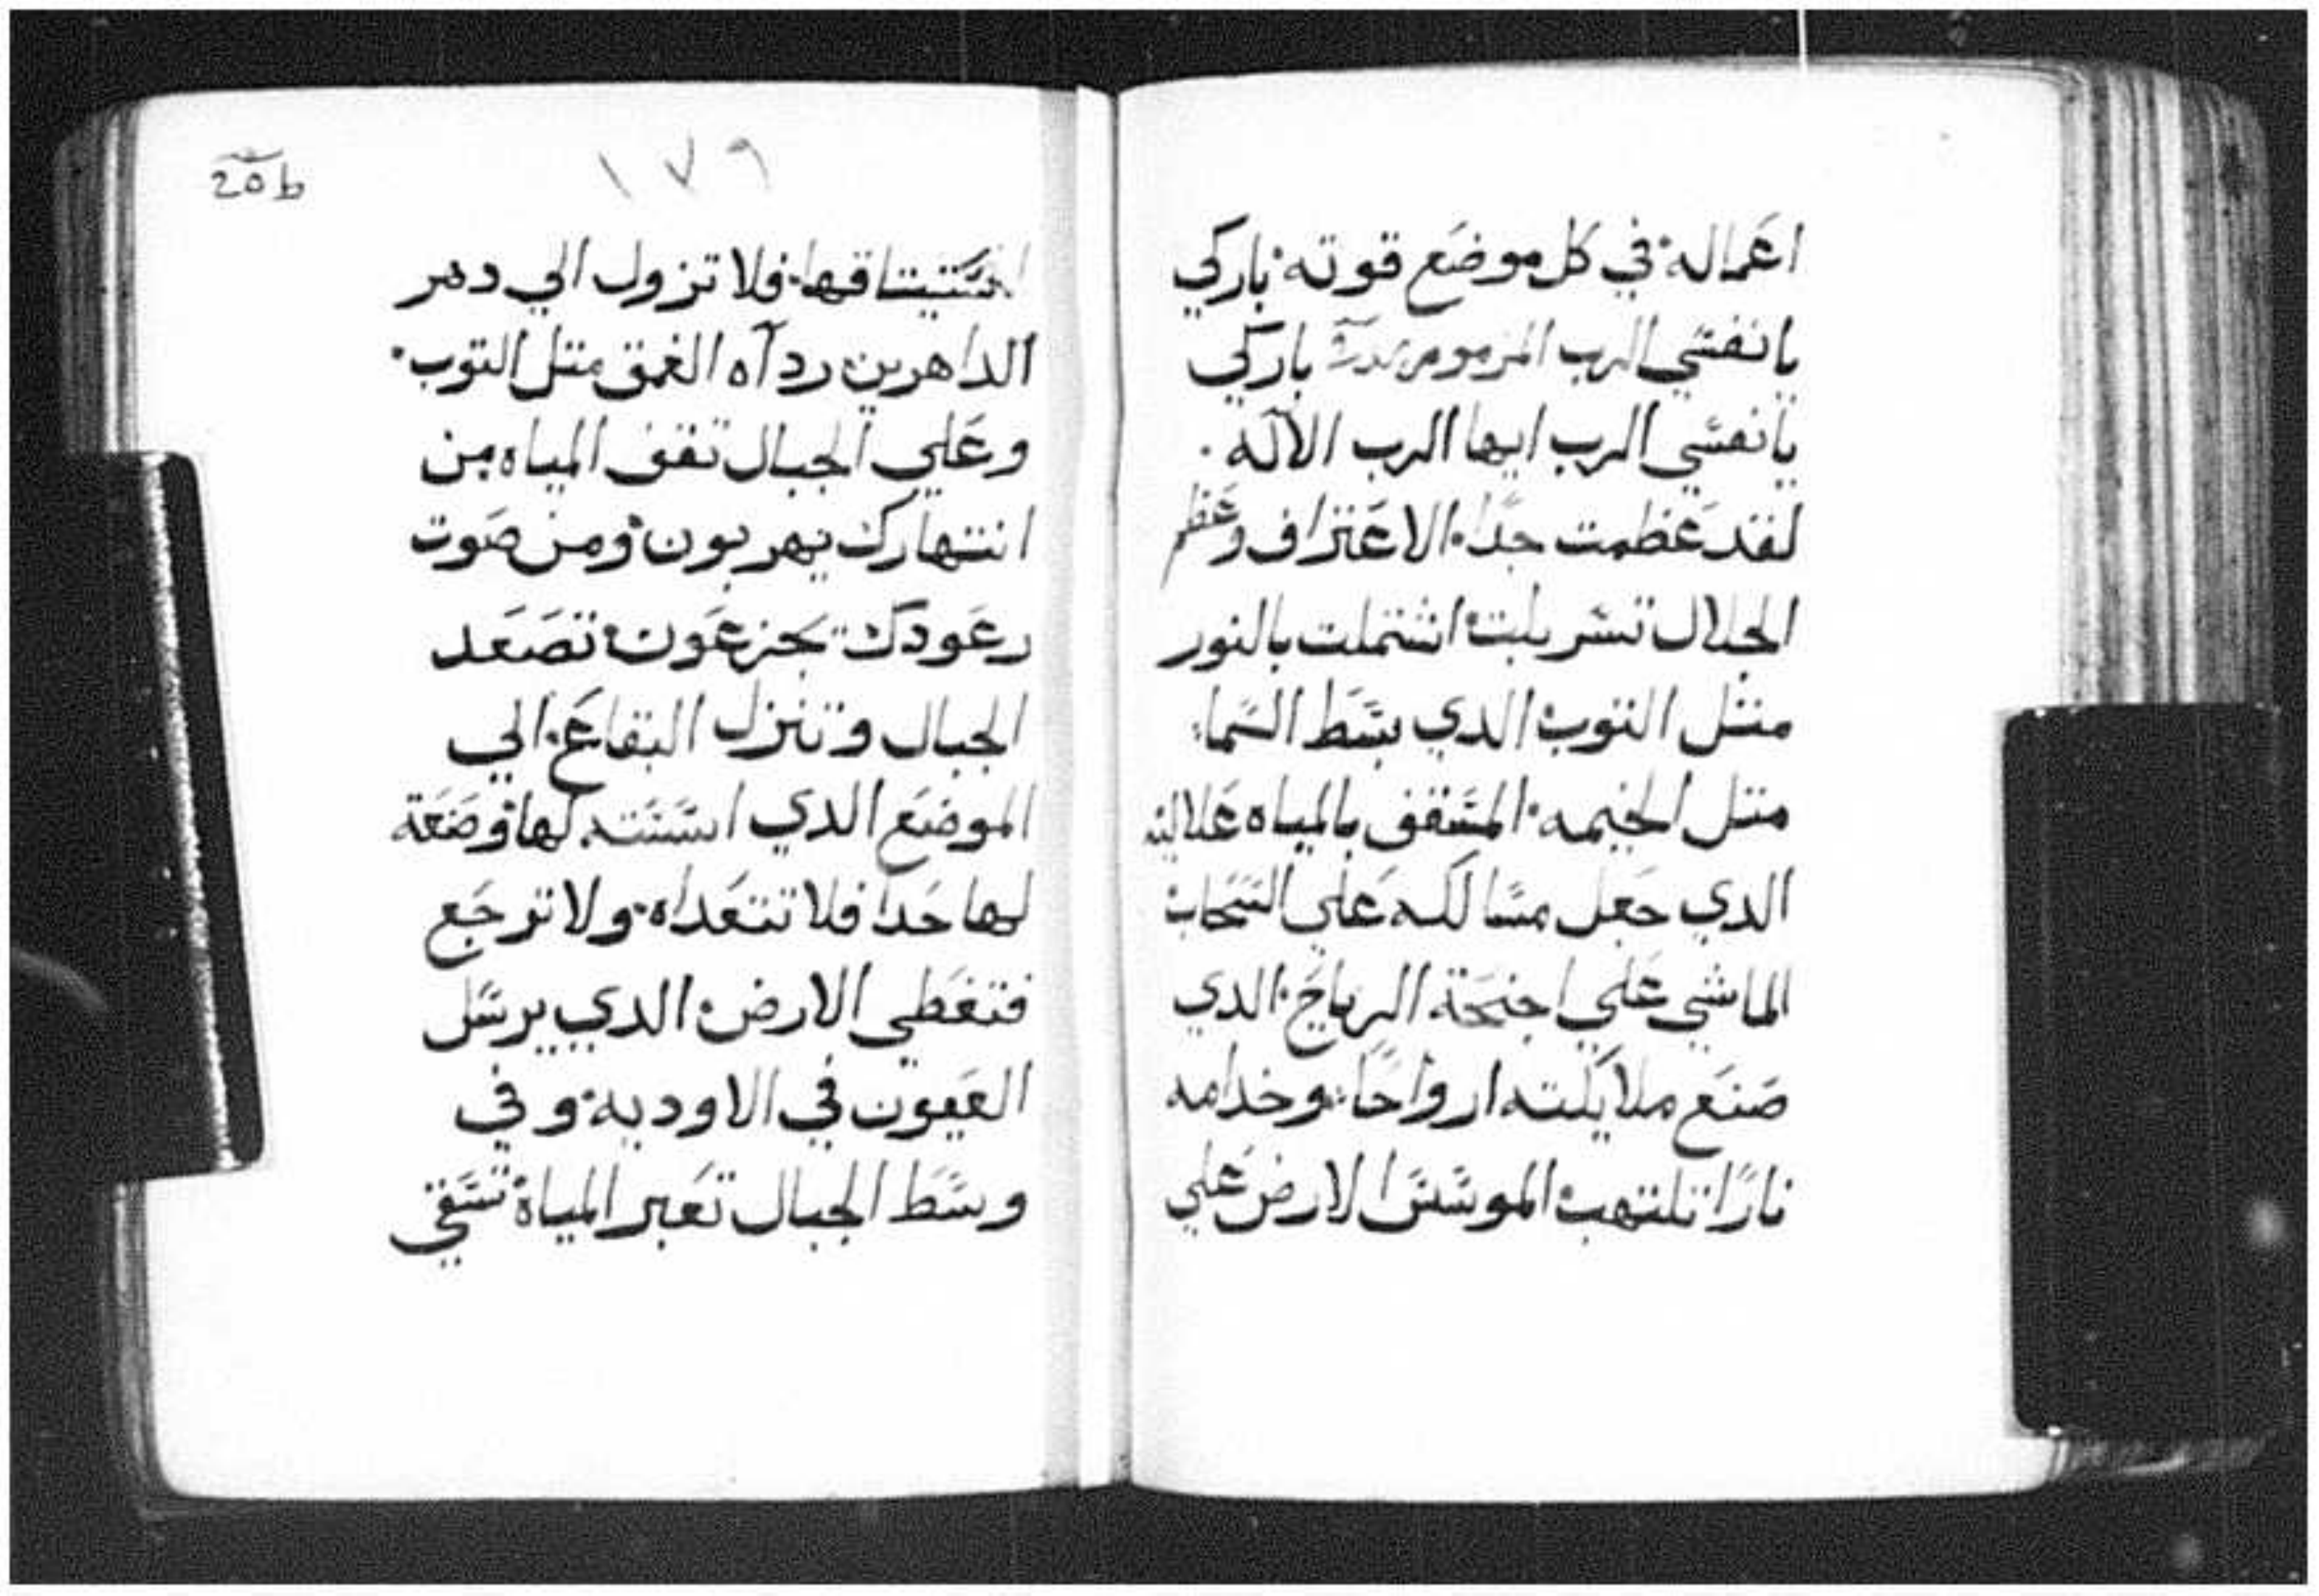 اعماله في كل موضع قوته باركي
يا نفسي الرب المزمور باركي
يا نفسي الرب ايها الرب الآله ·
لقد عظمت جدًا الاعتراف وعظم
الجلال تسربلت اشتملت بالنور
متل التوب الدي بسط السما
متل الخيمه المسقف بالمياه علاليه
الدي جعل مسالكه علي السحاب
الماشي علي اجنحة الرياح الدي
صنع ملايكته ارواحًا وخدامه
نارًا تلتهب الموسس الارض علي
١٧٩
20b
فلا تزول الي دهر
الداهرين ردآه الغمق متل التوب
وعلي الجبال تقف المياه من
انتهارك يهربون ومن صوت
رعودك يجزعون تصعد
الجبال وتنزل البقاع الي
الموضع الدي اسسته لها وضعة
لها حدا فلا تتعداه ولا ترجع
فتغطي الارض الدي يرسل
العيون في الاوديه وفي
وسط الجبال تعبر المياه تسقي